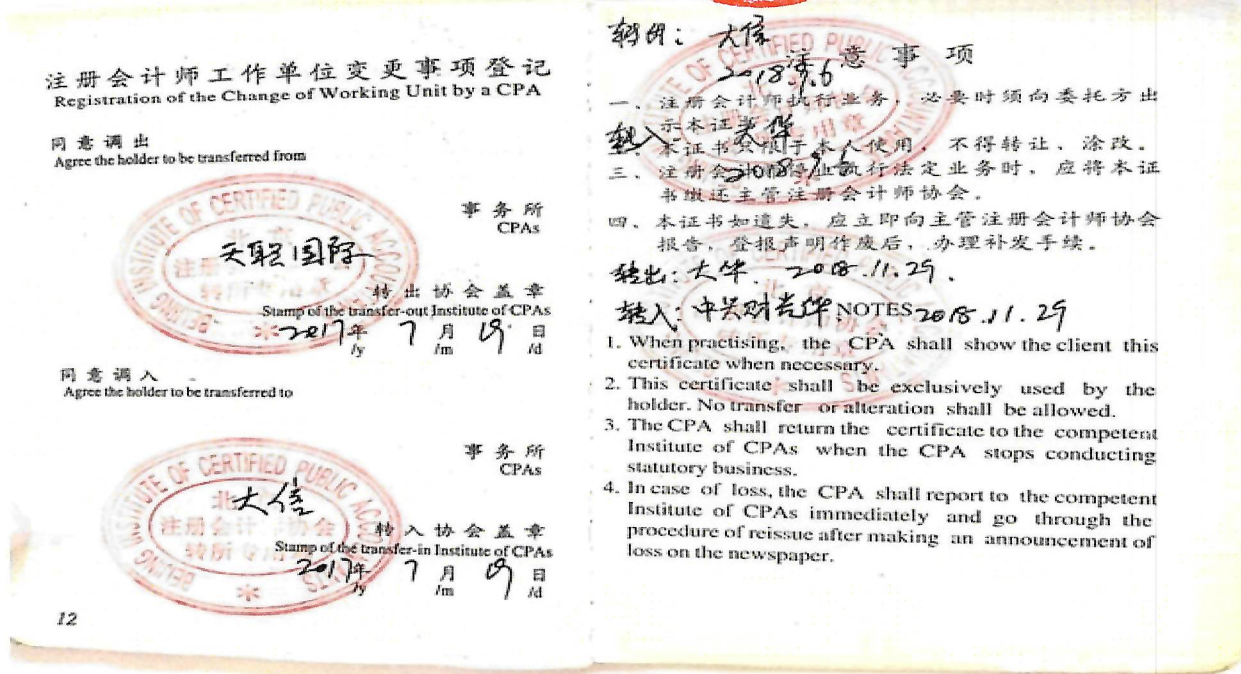 注册会计师工作单位变更事项登记
Registration of the Change of Working Unit by a CPA
同意调出
Agree the holder to be transferred from
BEIJING INSTITUTE OF CERTIFIED PUBLIC ACCOUNTANTS
事务所
CPAs
天职国际
转出协会盖章
Stamp of the transfer-out Institute of CPAs
2017年 7月 19日
/y /m /d
同意调入
Agree the holder to be transferred to
BEIJING INSTITUTE OF CERTIFIED PUBLIC ACCOUNTANTS
事务所
CPAs
大信
转入协会盖章
Stamp of the transfer-in Institute of CPAs
2017年 7月 19日
/y /m /d
12
转出: 大信
2018.9.6
注意事项
一、注册会计师执行业务，必要时须向委托方出
示本证书。
转入 大华
2018.9.6
二、本证书只限于本人使用，不得转让、涂改。
三、注册会计师停止执行法定业务时，应将本证
书缴还主管注册会计师协会。
四、本证书如遗失，应立即向主管注册会计师协会
报告，登报声明作废后，办理补发手续。
转出: 大华 2018.11.29.
转入: 中兴财光华 2018.11.29
NOTES
1. When practising, the CPA shall show the client this
certificate when necessary.
2. This certificate shall be exclusively used by the
holder. No transfer or alteration shall be allowed.
3. The CPA shall return the certificate to the competent
Institute of CPAs when the CPA stops conducting
statutory business.
4. In case of loss, the CPA shall report to the competent
Institute of CPAs immediately and go through the
procedure of reissue after making an announcement of
loss on the newspaper.